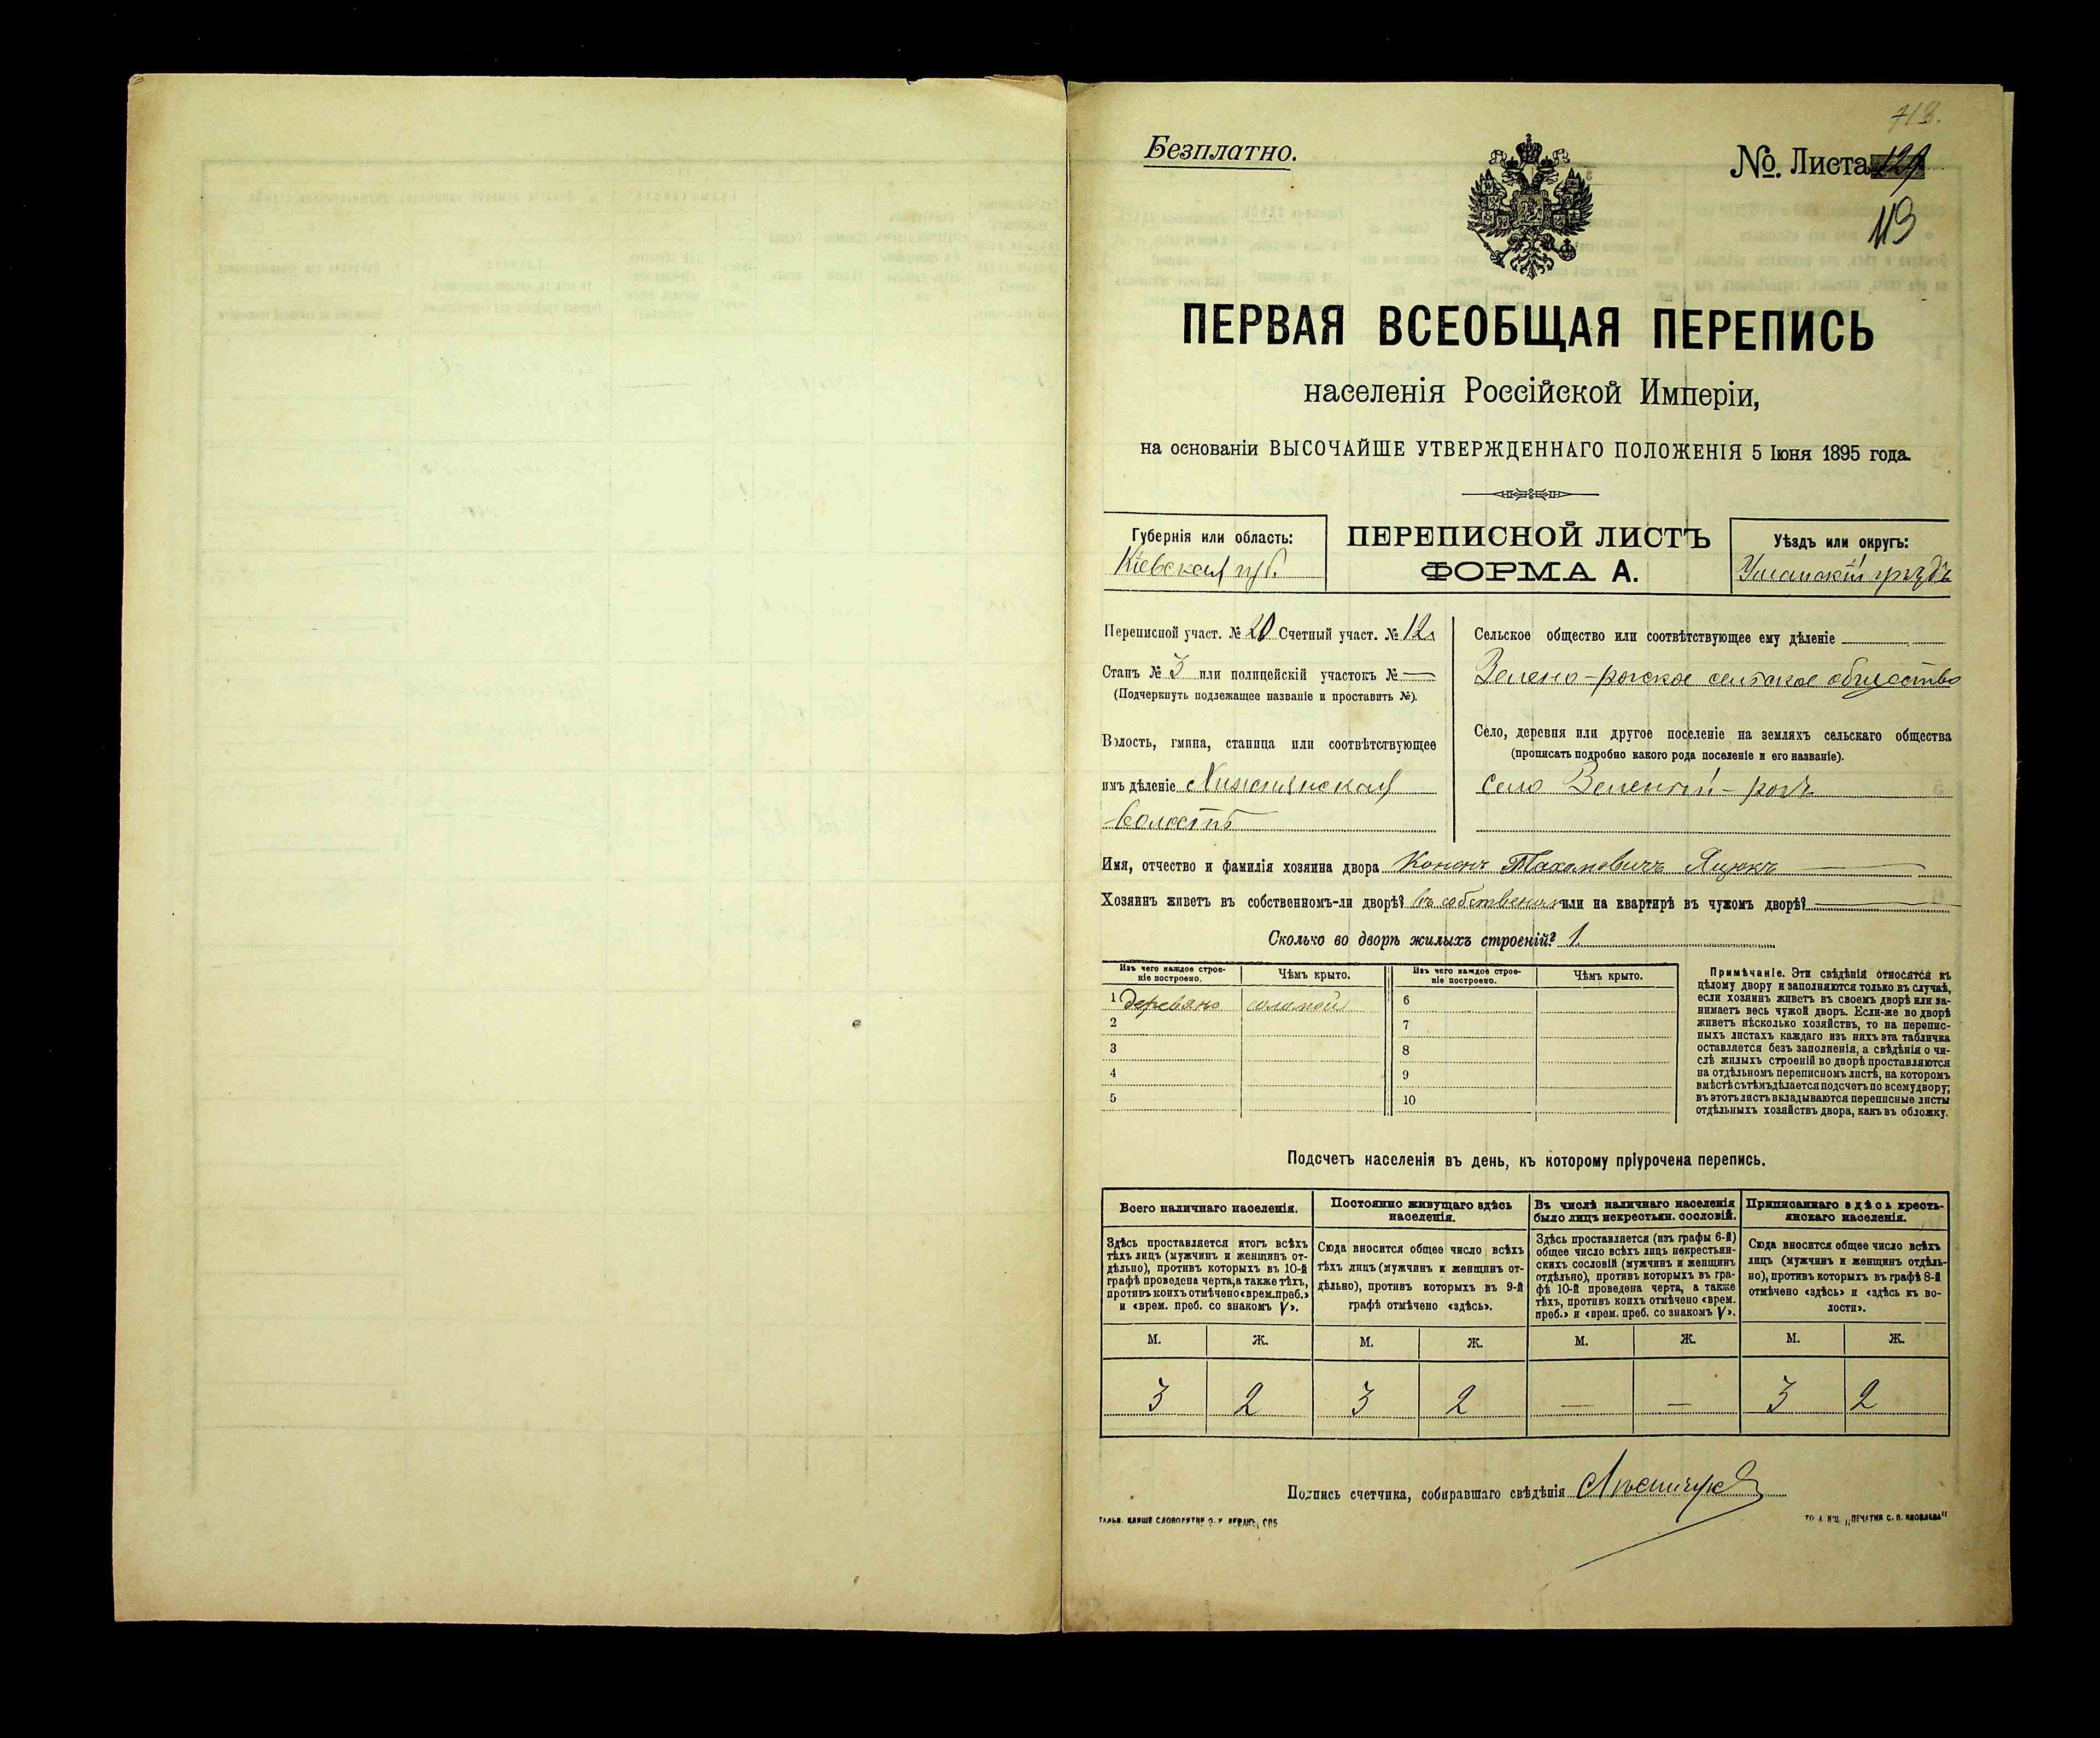 713.
Безплатно.
№. Листа 127
113
ПЕРВАЯ ВСЕОБЩАЯ ПЕРЕПИСЬ
населенія Россійской Имперіи,
на основаніи ВЫСОЧАЙШЕ УТВЕРЖДЕННАГО ПОЛОЖЕНІЯ 5 Іюня 1895 года.
Губернія или область:
Кіевская губ.
ПЕРЕПИСНОЙ ЛИСТЪ
ФОРМА А.
Уѣздъ или округъ:
Уманскій уѣздъ
Переписной участ. № 20 Счетный участ. № 12
Станъ № 3 или полицейскій участокъ № —
(Подчеркнуть подлежащее названіе и проставить №).
Волость, гмина, станица или соотвѣтствующее
имъ дѣленіе
волость
Сельское общество или соотвѣтствующее ему дѣленіе
Зелено-рогское сельское общество
Село, деревня или другое поселеніе на земляхъ сельскаго общества
(прописать подробно какого рода поселеніе и его названіе).
село Зеленый-рогъ
Имя, отчество и фамилія хозяина двора Кононъ Яцюкъ
Хозяинъ живетъ въ собственномъ-ли дворѣ? въ собственномъ или на квартирѣ въ чужомъ дворѣ? —
Сколько во дворѣ жилыхъ строеній? 1
Изъ чего каждое строе-
ніе построено.
Чѣмъ крыто.
Изъ чего каждое строе-
ніе построено.
Чѣмъ крыто.
1 деревяно соломой 6
2 7
3 8
4 9
5 10
Примѣчаніе. Эти свѣдѣнія относятся къ
цѣлому двору и заполняются только въ случаѣ,
если хозяинъ живетъ въ своемъ дворѣ или за-
нимаетъ весь чужой дворъ. Если-же во дворѣ
живетъ нѣсколько хозяйствъ, то на перепис-
ныхъ листахъ каждаго изъ нихъ эта табличка
оставляется безъ заполненія, а свѣдѣнія о чи-
слѣ жилыхъ строеній во дворѣ проставляются
на отдѣльномъ переписномъ листѣ, на которомъ
вмѣстѣ съ тѣмъ дѣлается подсчетъ по всему двору;
въ этотъ листъ вкладываются переписные листы
отдѣльныхъ хозяйствъ двора, какъ въ обложку.
Подсчетъ населенія въ день, къ которому пріурочена перепись.
Всего наличнаго населенія.
Здѣсь проставляется итогъ всѣхъ
тѣхъ лицъ (мужчинъ и женщинъ от-
дѣльно), противъ которыхъ въ 10-й
графѣ проведена черта, а также тѣхъ,
противъ коихъ отмѣчено «врем. преб.»
и «врем. преб. со знакомъ V».
Постоянно живущаго здѣсь
населенія.
Сюда вносится общее число всѣхъ
тѣхъ лицъ (мужчинъ и женщинъ от-
дѣльно), противъ которыхъ въ 9-й
графѣ отмѣчено «здѣсь».
Въ числѣ наличнаго населенія
было лицъ некрестьян. сословій.
Здѣсь проставляется (изъ графы 6-й)
общее число всѣхъ лицъ некрестьян-
скихъ сословій (мужчинъ и женщинъ
отдѣльно), противъ которыхъ въ гра-
фѣ 10-й проведена черта, а также
тѣхъ, противъ коихъ отмѣчено «врем.
преб.» и «врем. преб. со знакомъ V».
Приписаннаго здѣсь кресть-
янскаго населенія.
Сюда вносится общее число всѣхъ
лицъ (мужчинъ и женщинъ отдѣль-
но), противъ которыхъ въ графѣ 8-й
отмѣчено «здѣсь» и «здѣсь къ во-
лости».
М. Ж. М. Ж. М. Ж. М. Ж.
3 2 3 2 — — 3 2
Подпись счетчика, собиравшаго свѣдѣнія